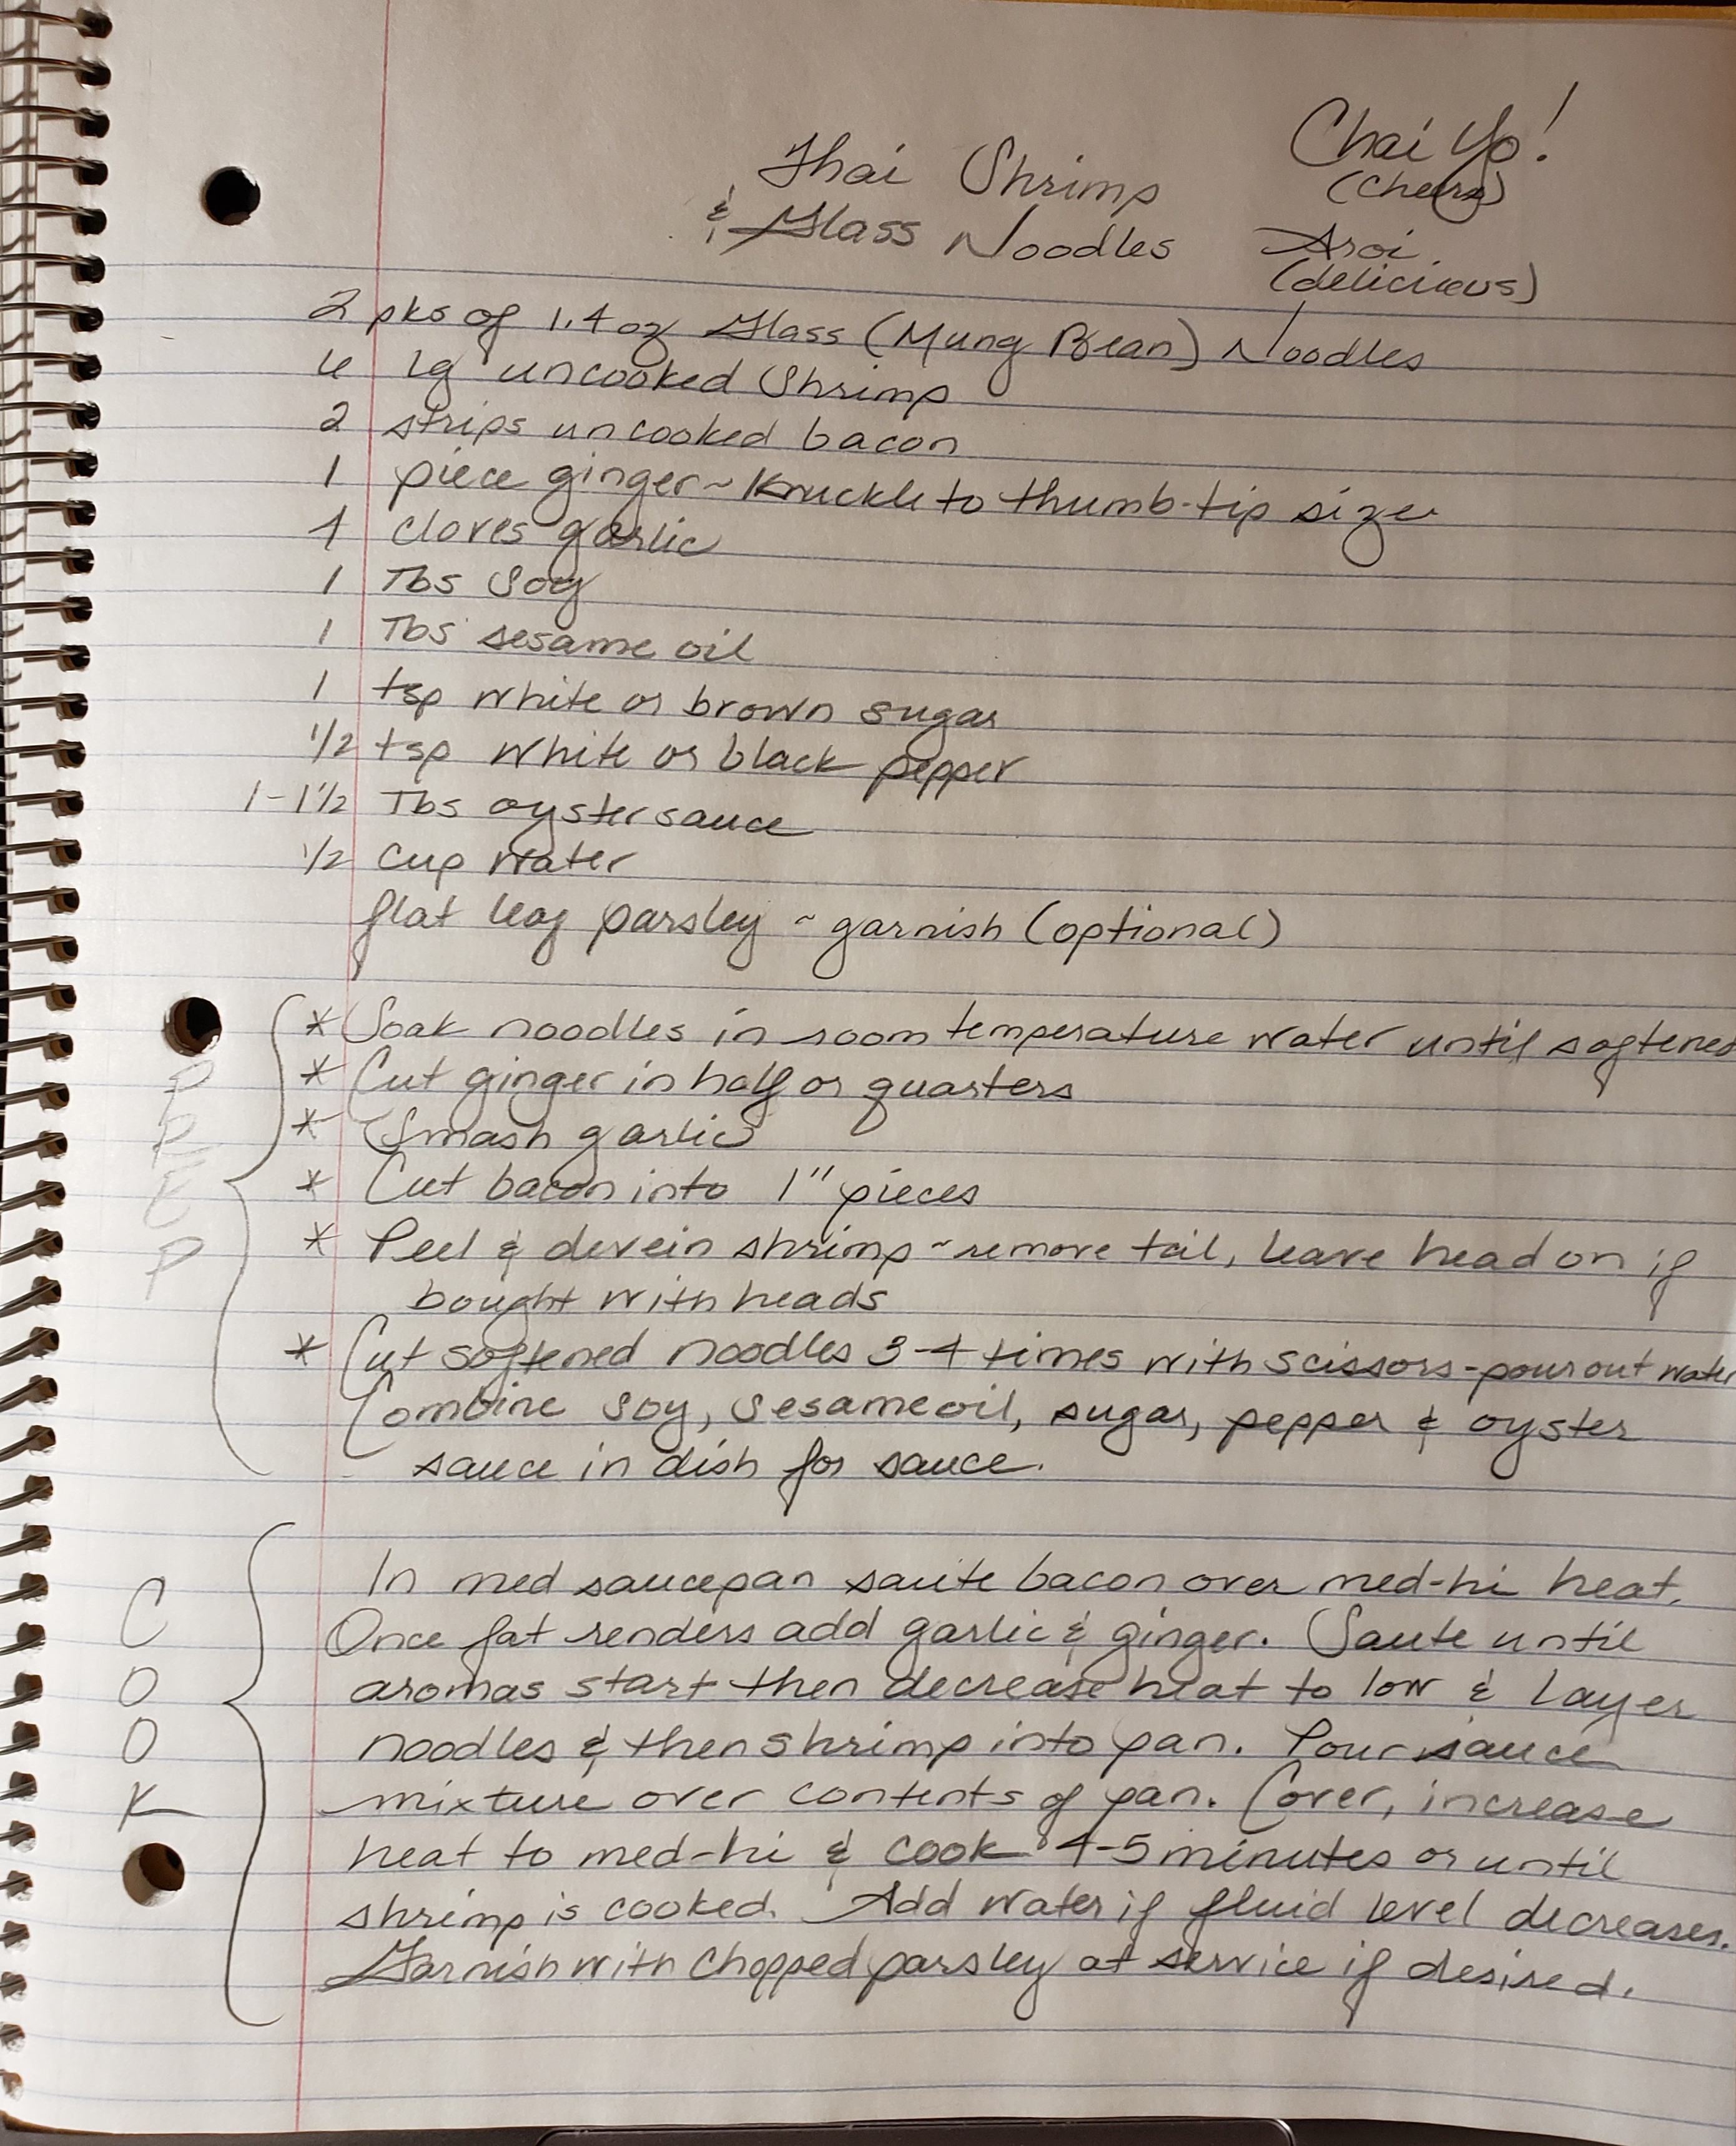 Thai Shrimp
& Glass Noodles
Chai Yo!
(cheers)
Aroi
(delicious)
2 pks of 1.4 oz Glass (Mung Bean) Noodles
lg uncooked Shrimp
2 strips uncooked bacon
1 piece ginger ~ Knuckle to thumb-tip size
4 cloves garlic
1 Tbs Soy
1 Tbs sesame oil
1 tsp white or brown sugar
1/2 tsp white or black pepper
1-1 1/2 Tbs oyster sauce
1/2 cup water
flat leaf parsley ~ garnish (optional)
PREP
* Soak noodles in room temperature water until softened
* Cut ginger in half or quarters
* Smash garlic
* Cut bacon into 1" pieces
* Peel & devein shrimp ~ remove tail, leave head on if
bought with heads
* Cut softened noodles 3-4 times with scissors - pour out water
Combine soy, sesame oil, sugar, pepper & oyster
sauce in dish for sauce.
COOK
In med saucepan saute bacon over med-hi heat.
Once fat renders add garlic & ginger. Saute until
aromas start then decrease heat to low & layer
noodles & then shrimp into pan. Pour sauce
mixture over contents of pan. Cover, increase
heat to med-hi & cook 4-5 minutes or until
shrimp is cooked. Add water if fluid level decreases.
Garnish with chopped parsley at service if desired.